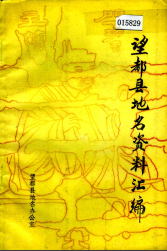 015829
望都县地名资料汇编
望都县地名办公室